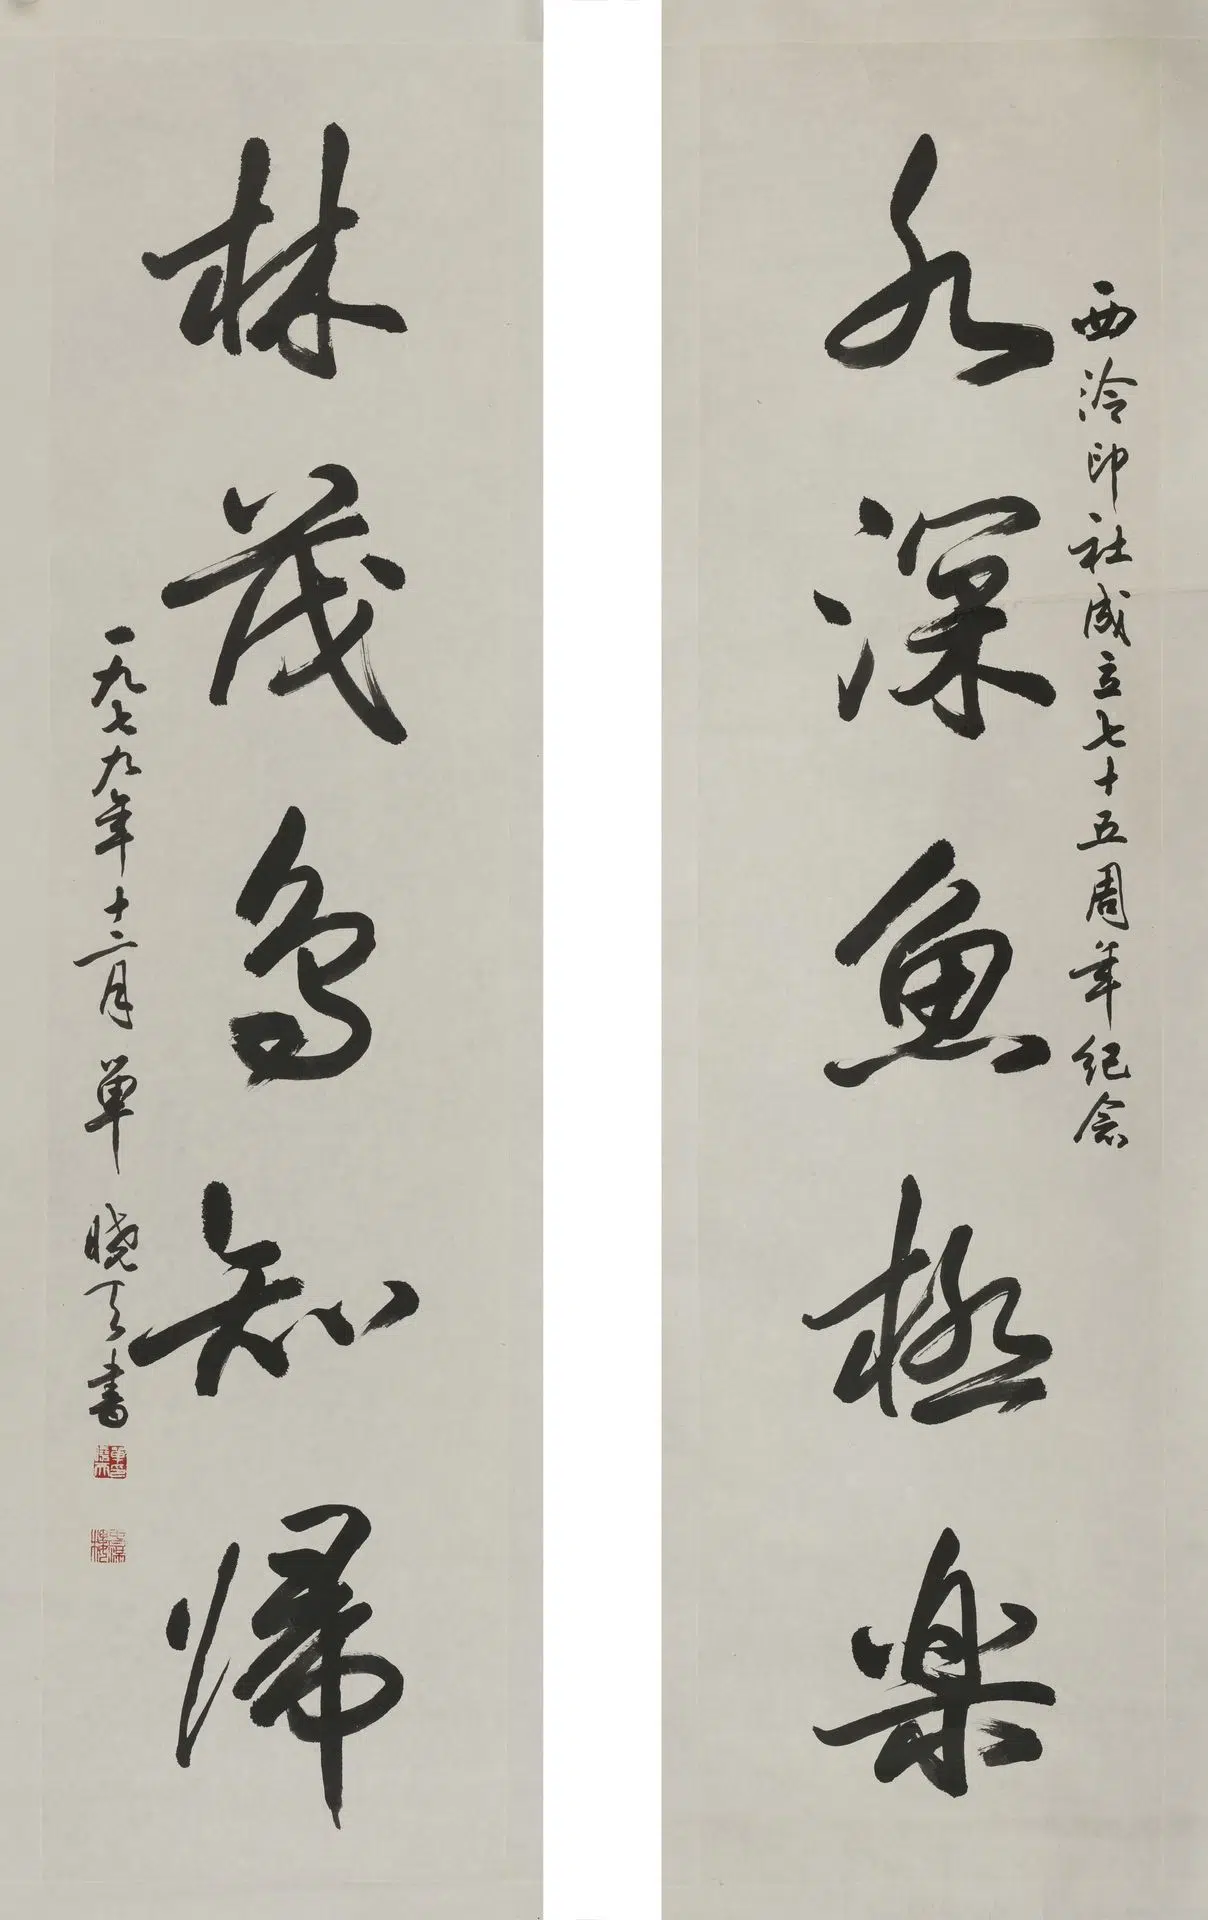 西泠印社成立七十五周年纪念
水深魚极楽
林茂鸟知歸
一九七九年十二月單晓天書